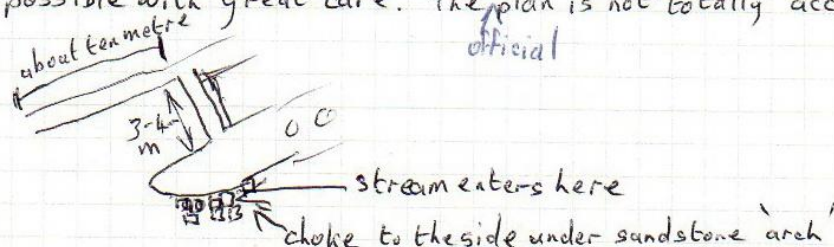 possible with great care. The plan is not totally acc
official
about ten metre
3-4
m
stream enters here
choke to the side under sandstone `arch'